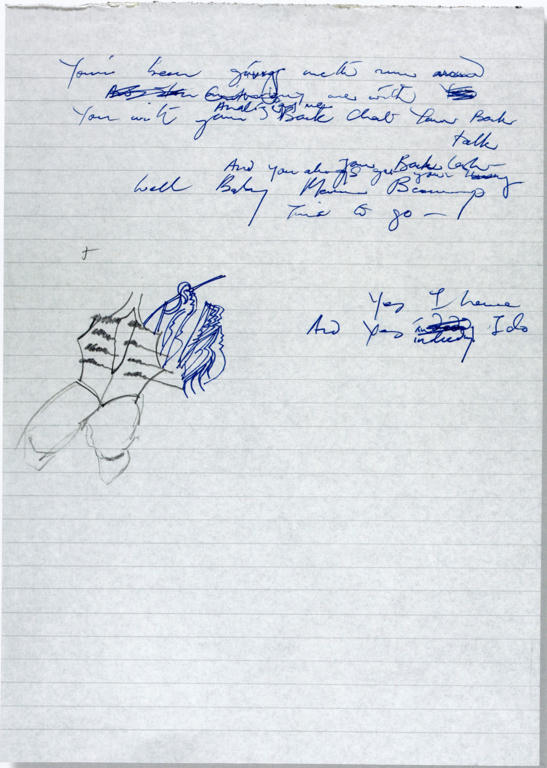 You've been giving me the run around
me with
You with your Back Chat Your Back
Analising me
talk
Your Back Lash
And you always get your way
Well Baby
Time to go —
Yes I have
And Yes indeed I do